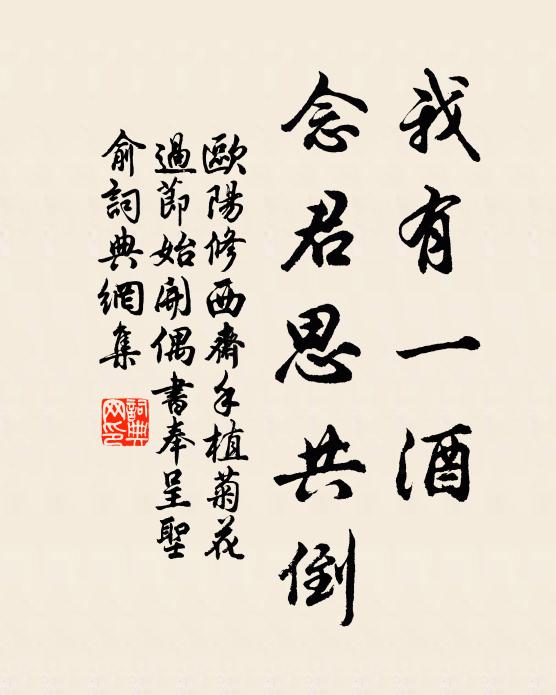 我有一酒
念君思共倒
歐陽修西齋手植菊花
過節始開偶書奉呈聖
俞詞典網集
詞典
网印